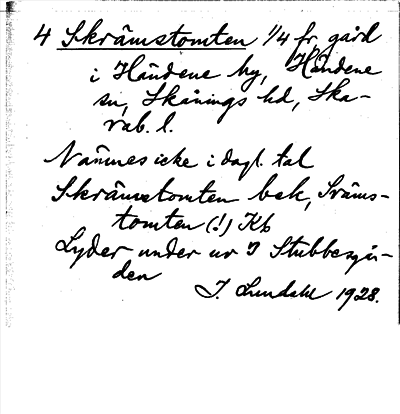 4 Skrämstomten 1/4 fr. gård
i Händene by, Händene
sn, Skånings hd, Ska-
rab. l.
Nämnes icke i dagl. tal
Skrämstomten bek, Sväms-
tomten (!) Kb
Lyder under nr 3 Stubbesgår-
den
J. Lundahl 1928.